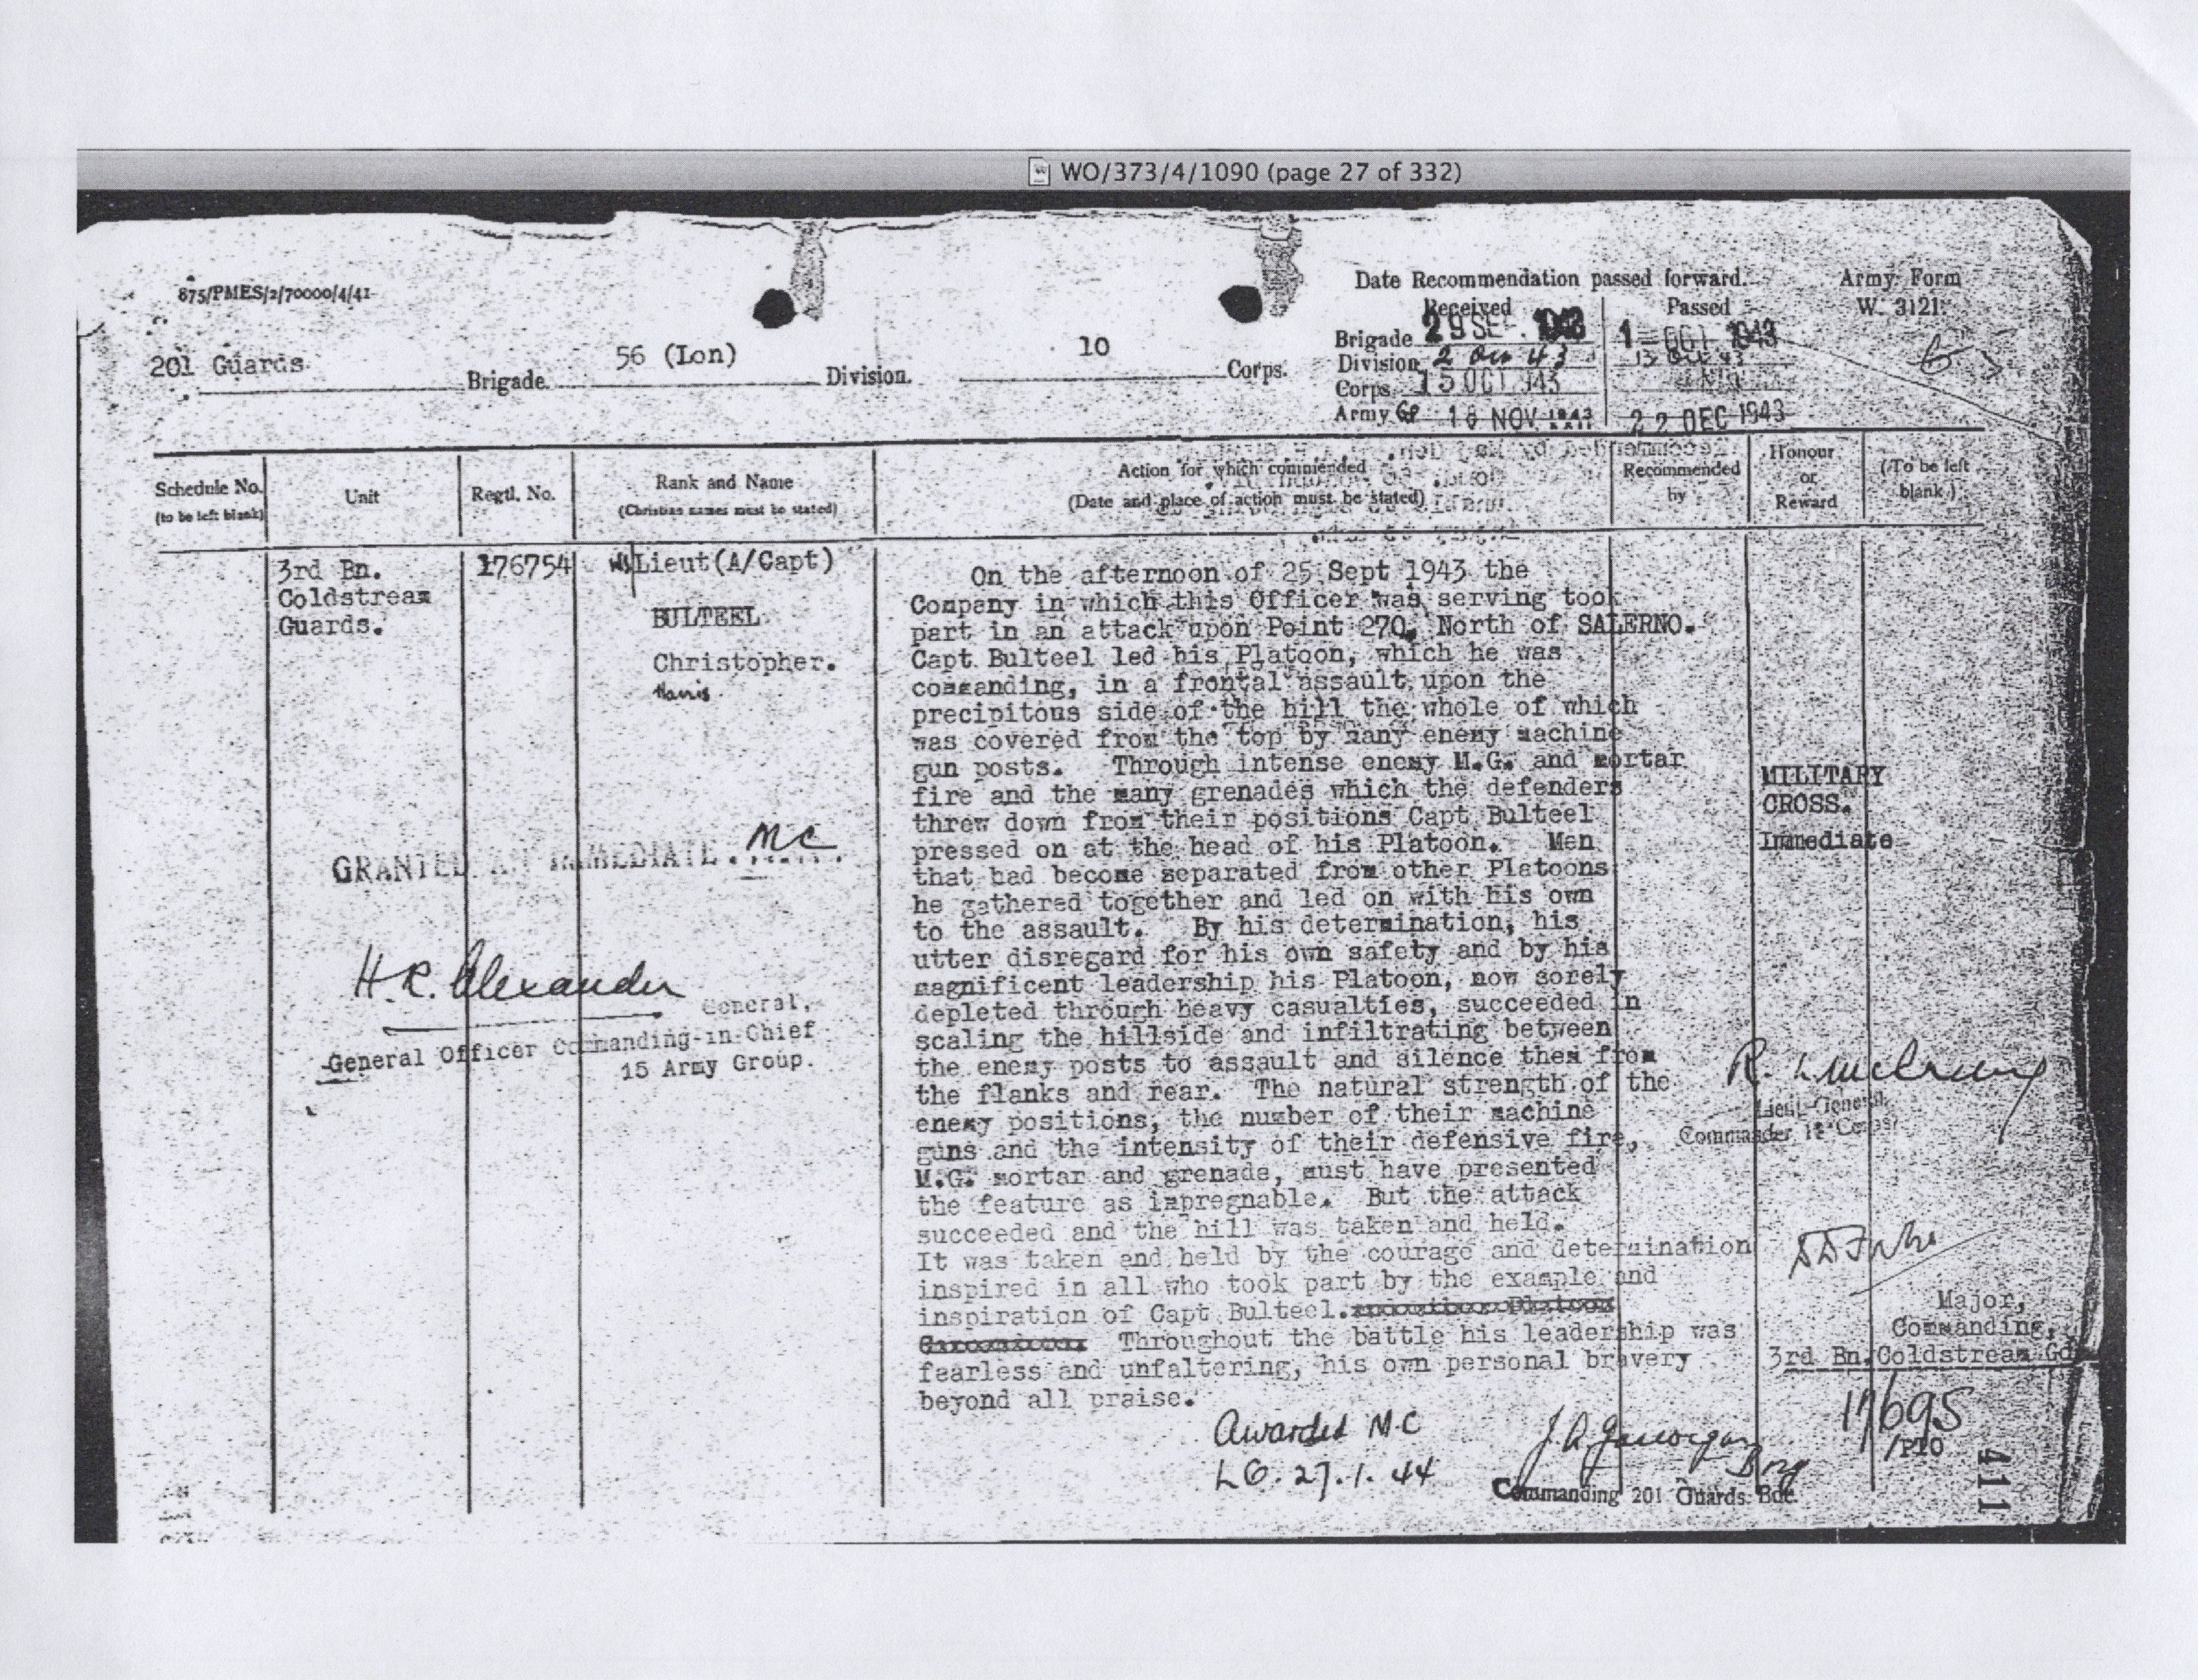 WO/373/4/1090 (page 27 of 332)
875/PMES/2/70000/4/41
Date Recommendation passed forward.
Army Form
W. 3121.
Received
Passed
201 Guards Brigade. 56 (Lon) Division. 10 Corps.
Brigade 29 SEP. 1943 1 OCT 1943
Division 2 Oct 43 13 Oct 43
Corps 15 OCT 1943
Army Gp 16 NOV 1943 22 DEC 1943
Schedule No.
(to be left blank)
Unit
Regtl. No.
Rank and Name
(Christian names must be stated)
Action for which commended
(Date and place of action must be stated)
Recommended
by
Honour
or
Reward
(To be left
blank)
3rd Bn.
Coldstream
Guards.
176754
WS/Lieut(A/Capt)
BULTEEL
Christopher.
Harris
On the afternoon of 25 Sept 1943 the
Company in which this Officer was serving took
part in an attack upon Point 270, North of SALERNO.
Capt Bulteel led his Platoon, which he was
commanding, in a frontal assault upon the
precipitous side of the hill the whole of which
was covered from the top by many enemy machine
gun posts. Through intense enemy M.G. and mortar
fire and the many grenades which the defenders
threw down from their positions Capt Bulteel
pressed on at the head of his Platoon. Men
that had become separated from other Platoons
he gathered together and led on with his own
to the assault. By his determination, his
utter disregard for his own safety and by his
magnificent leadership his Platoon, now sorely
depleted through heavy casualties, succeeded in
scaling the hillside and infiltrating between
the enemy posts to assault and silence them from
the flanks and rear. The natural strength of the
enemy positions, the number of their machine
guns and the intensity of their defensive fire,
M.G. mortar and grenade, must have presented
the feature as impregnable. But the attack
succeeded and the hill was taken and held.
It was taken and held by the courage and determination
inspired in all who took part by the example and
inspiration of Capt Bulteel.
Throughout the battle his leadership was
fearless and unfaltering, his own personal bravery
beyond all praise.
MILITARY
CROSS.
Immediate
GRANTED AN IMMEDIATE MC
H.R. Alexander
General,
General Officer Commanding-in-Chief
15 Army Group.
Lieut-General
Commander, 10 Corps.
Major,
Commanding,
3rd Bn.Coldstream Gd
17695
/PTO
411
Awarded MC
LG. 27.1.44
Brig
Commanding 201 Guards Bde.